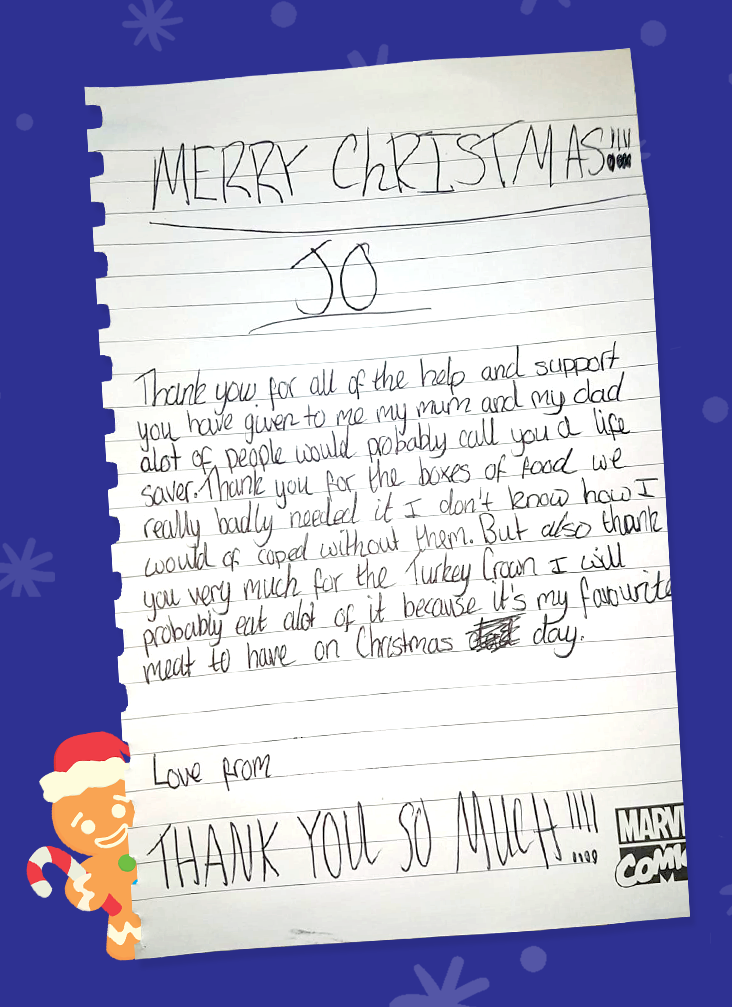 MERRY ChRISTMAS!!!!
JO
Thank you for all of the help and support
you have given to me my mum and my dad
alot of people would probably call you a life
saver. Thank you for the boxes of food we
really badly needed it I don't know how I
would of coped without them. But also thank
you very much for the Turkey Crown I will
probably eat alot of it because it's my favourite
meat to have on Christmas day.
Love from
THANK YOU SO MUCH!!!!
MARV
COMIC